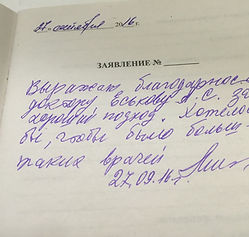 27 сентября 2016 г.
ЗАЯВЛЕНИЕ №
Выражаю благодарнос
доктору Еськову А. С. за
хороший подход. Хотело
бы, чтобы было больш
таких врачей
27.09.16 г.